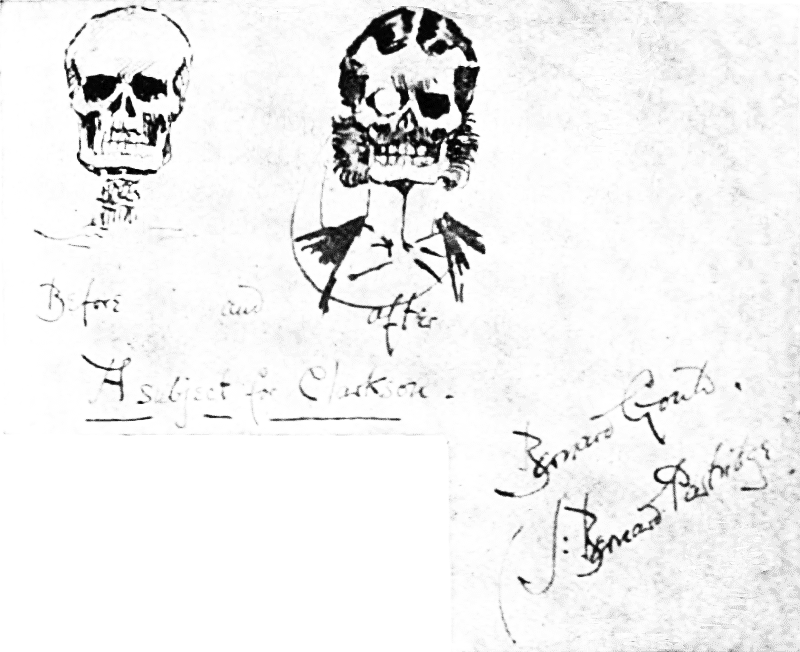 Before and after
A subject for Clarkson.
Bernard Gould.
(J: Bernard Partridge.